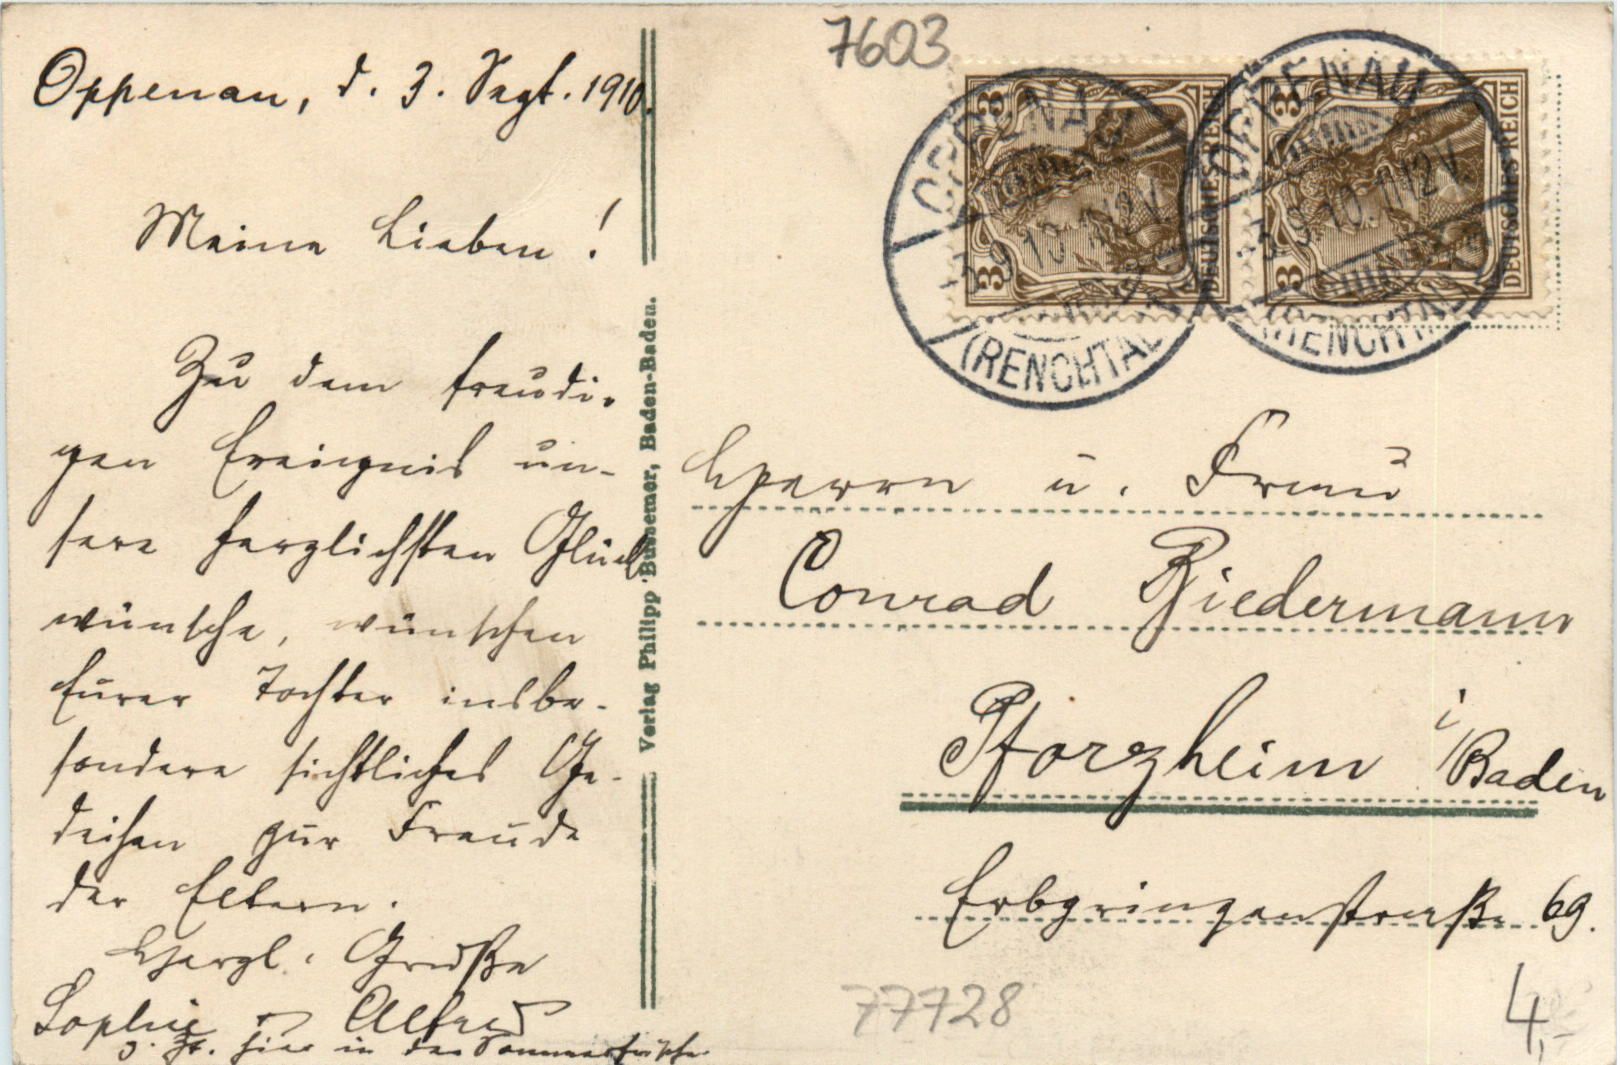 Oppenau, d. 3. Sept. 1910.
Meine Lieben!
Zu dem freudi-
gen Ereignis un-
sere herzlichsten Glück
wünsche, wünschen
Eurer Tochter insbe-
sondere sichtliches Ge-
deihen zur Freude
der Eltern.
Herzl. Grüße
Sophie u. Alfred
z. Zt. hier in der Sommerfrische.
Verlag Philipp Bussemer, Baden-Baden.
7603
3 3 DEUTSCHES REICH
3 3 DEUTSCHES REICH
OPPENAU
3.9.10. 11-12 V.
(RENCHTAL)
OPPENAU
3.9.10. 11-12 V.
(RENCHTAL)
Herrn u. Frau
Conrad Biedermann
Pforzheim i/Baden
Erbprinzenstraße 69.
77728
4,-